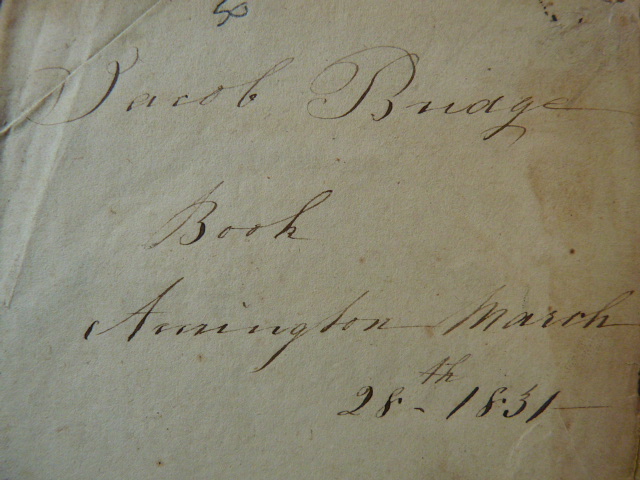 Jacob Bridge
Book
Amington March
28th - 1831